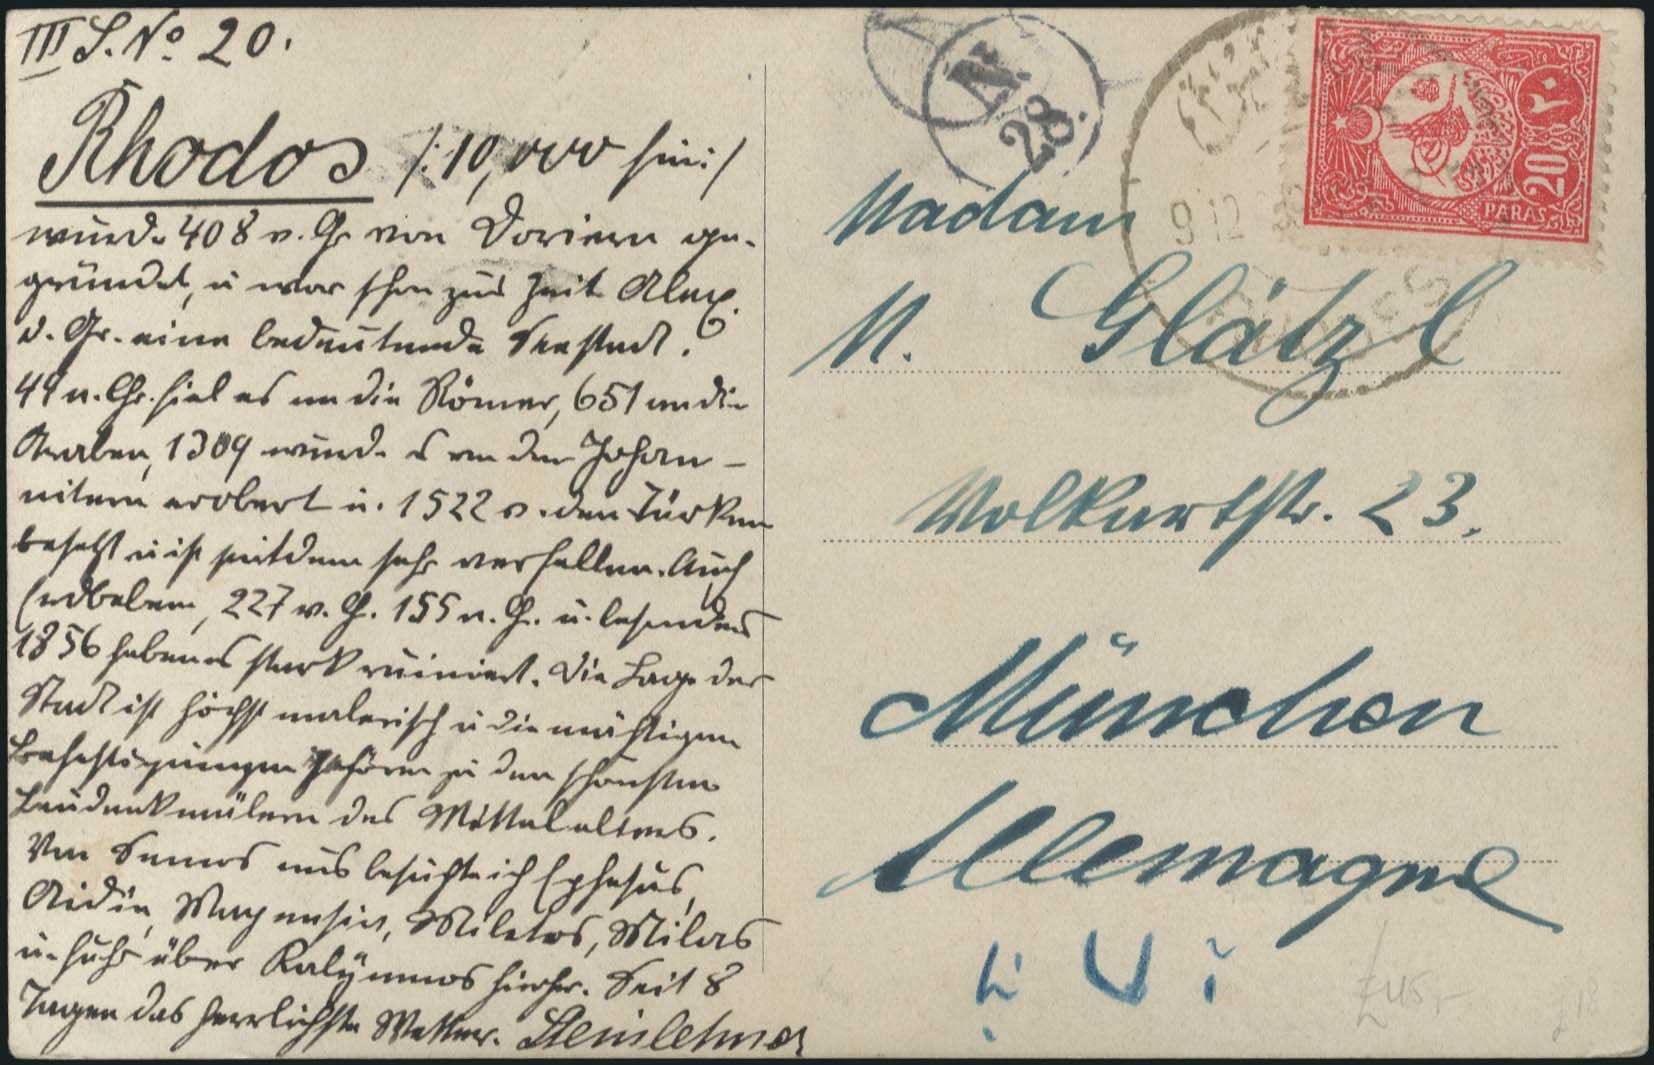 III S. No 20.
Rhodos /: 10,000 Einw. :/
wurde 408 v. Chr von Doriern ge-
gründet, u war schon zur Zeit Alex.
d. Gr. eine bedeutende Seestadt.
44 n. Chr. fiel es an die Römer, 651 an die
Araber, 1309 wurde es von den Johan-
nitern erobert u. 1522 v. den Türken
besetzt u ist seitdem sehr verfallen. Auch
Erdbeben, 227 v. Ch. 155 n. Ch. u. besonders
1856 haben es stark ruiniert. Die Lage der
Stadt ist höchst malerisch u die mächtigen
Befestigungen gehören zu den schönsten
Baudenkmälern des Mittelalters.
Von Samos aus besuchte ich Ephesus,
Aidin, Magnesia, Miletos, Milas
u. fuhr über Kalymnos hierher. Seit 8
Tagen das herrlichste Wetter. Steinlehner
N. 28.
9 12
20 PARAS ٢٠
Madam
M. Glätzl
Volkartstr. 23.
München
Allemagne